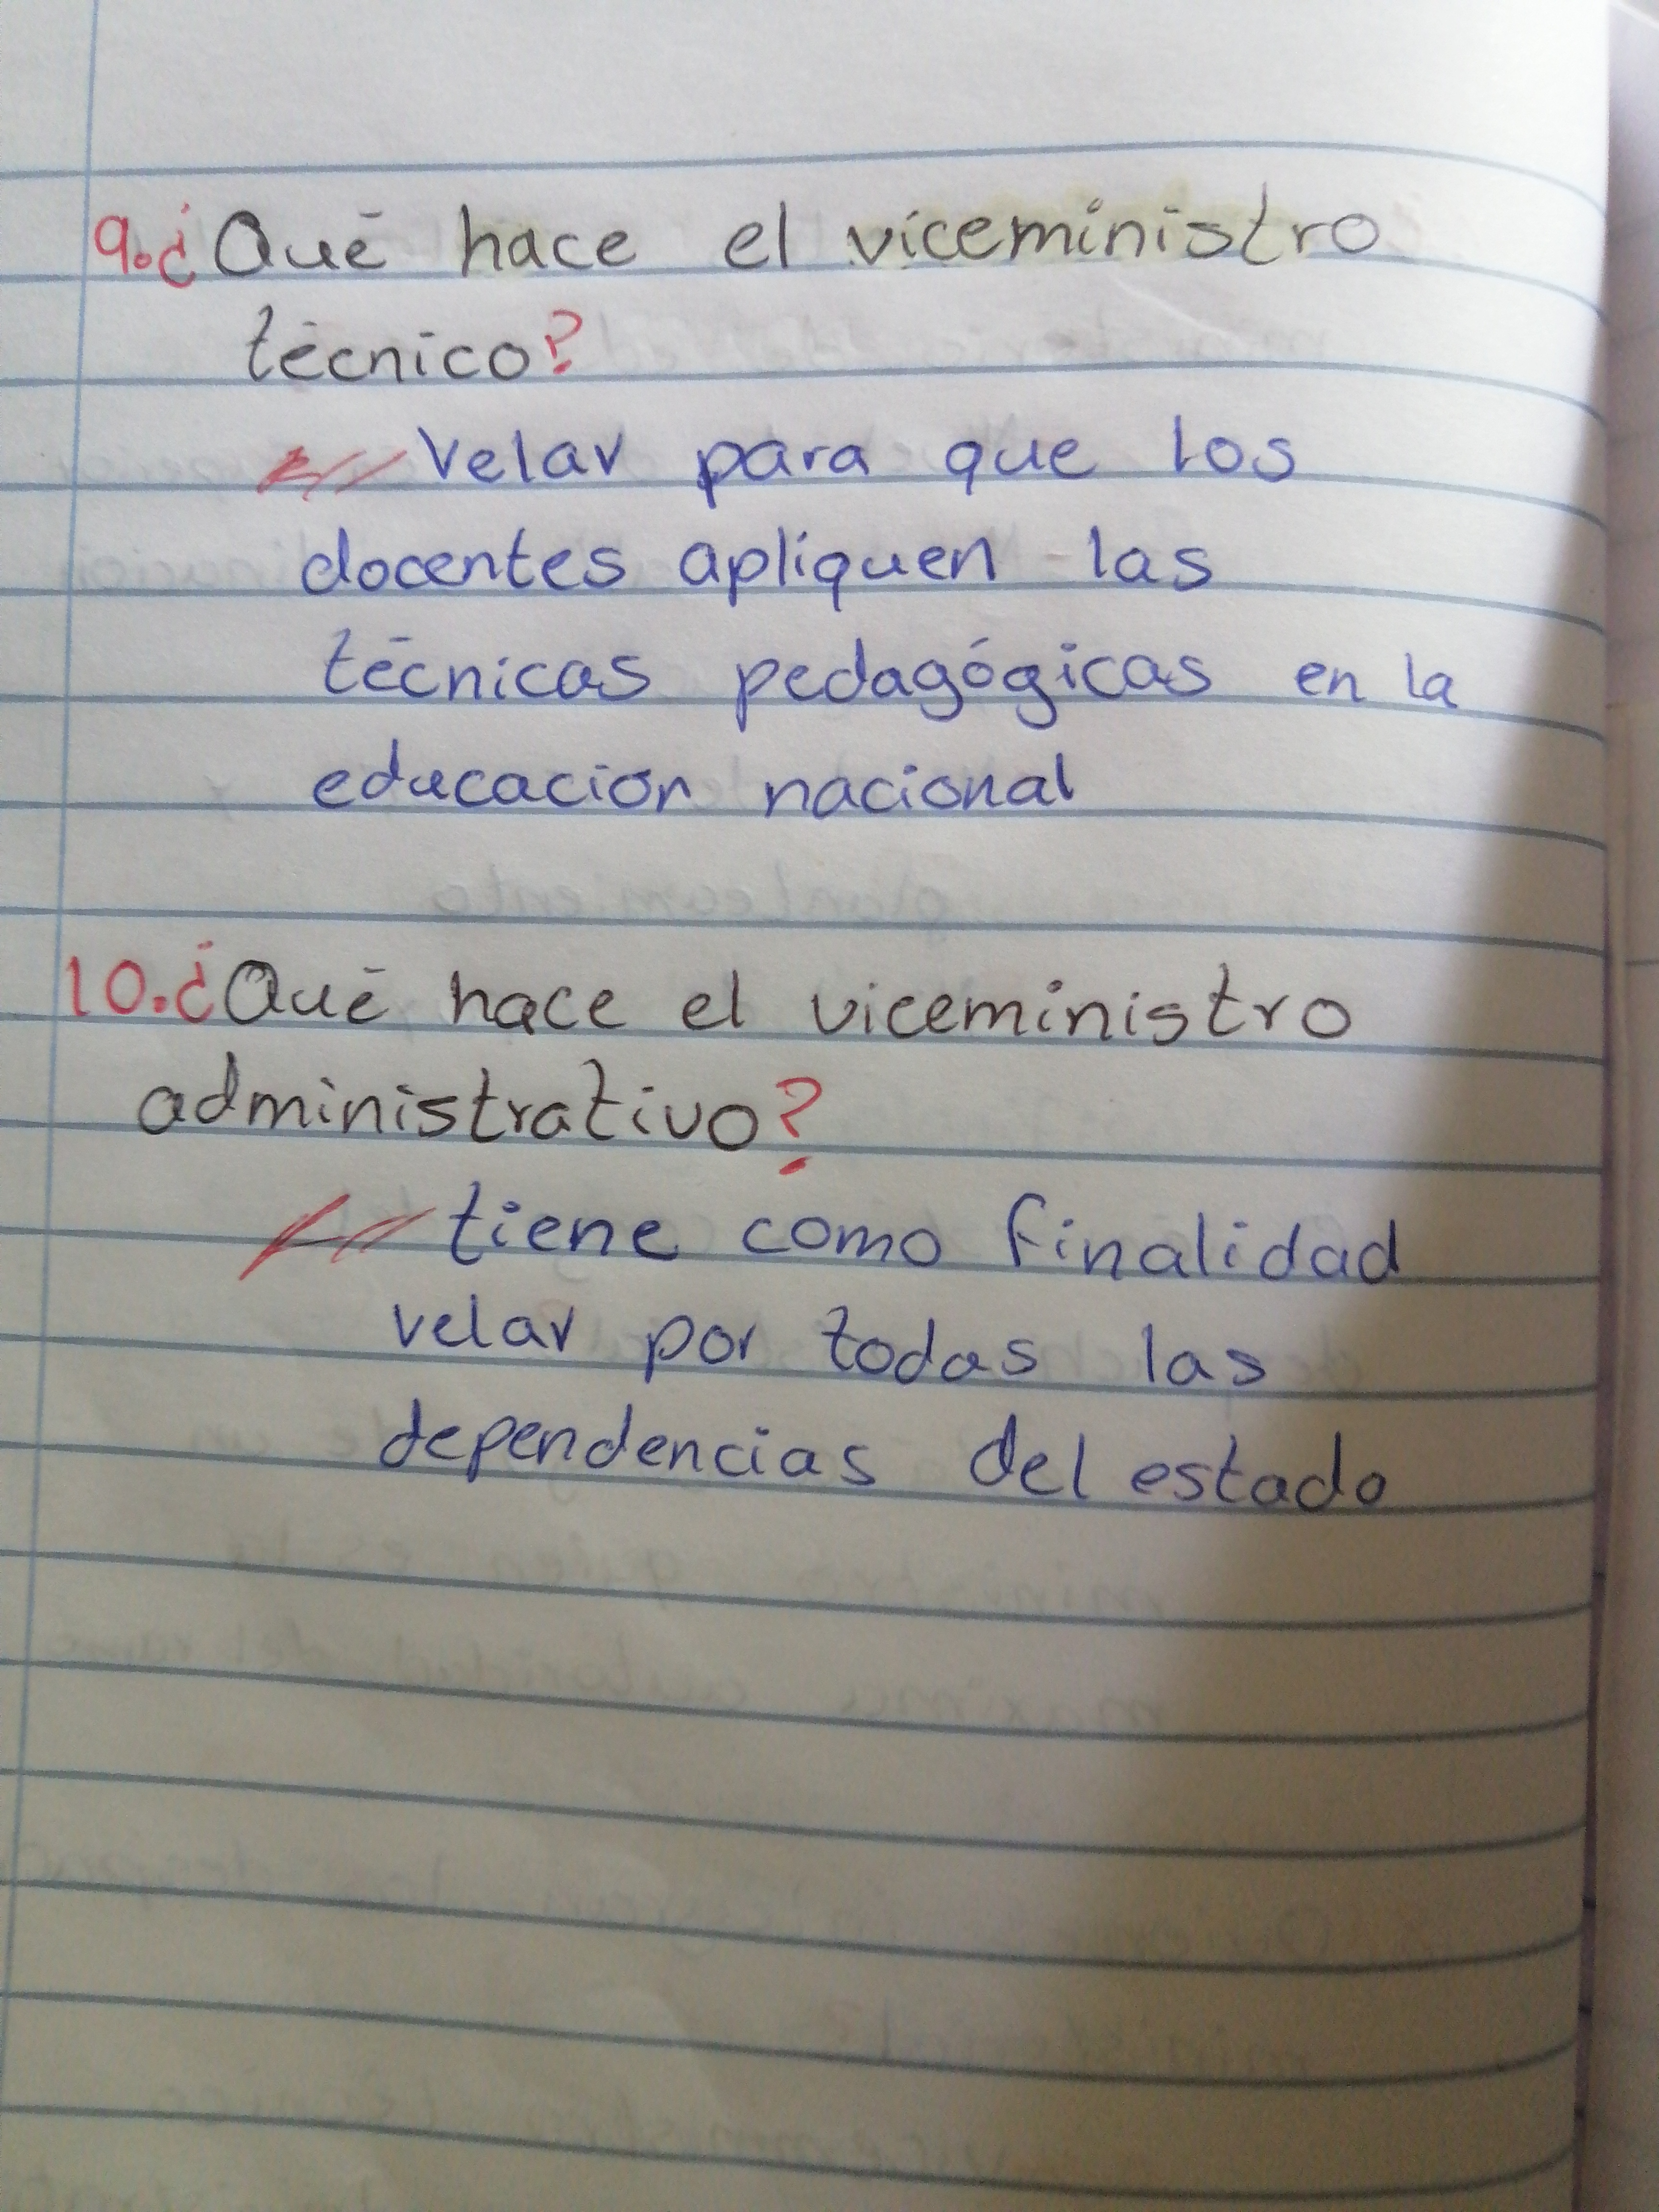 9.¿Qué hace el viceministro
técnico?
Velar para que los
docentes apliquen las
técnicas pedagógicas en la
educación nacional
10.¿Qué hace el viceministro
administrativo?
tiene como finalidad
velar por todas las
dependencias del estado